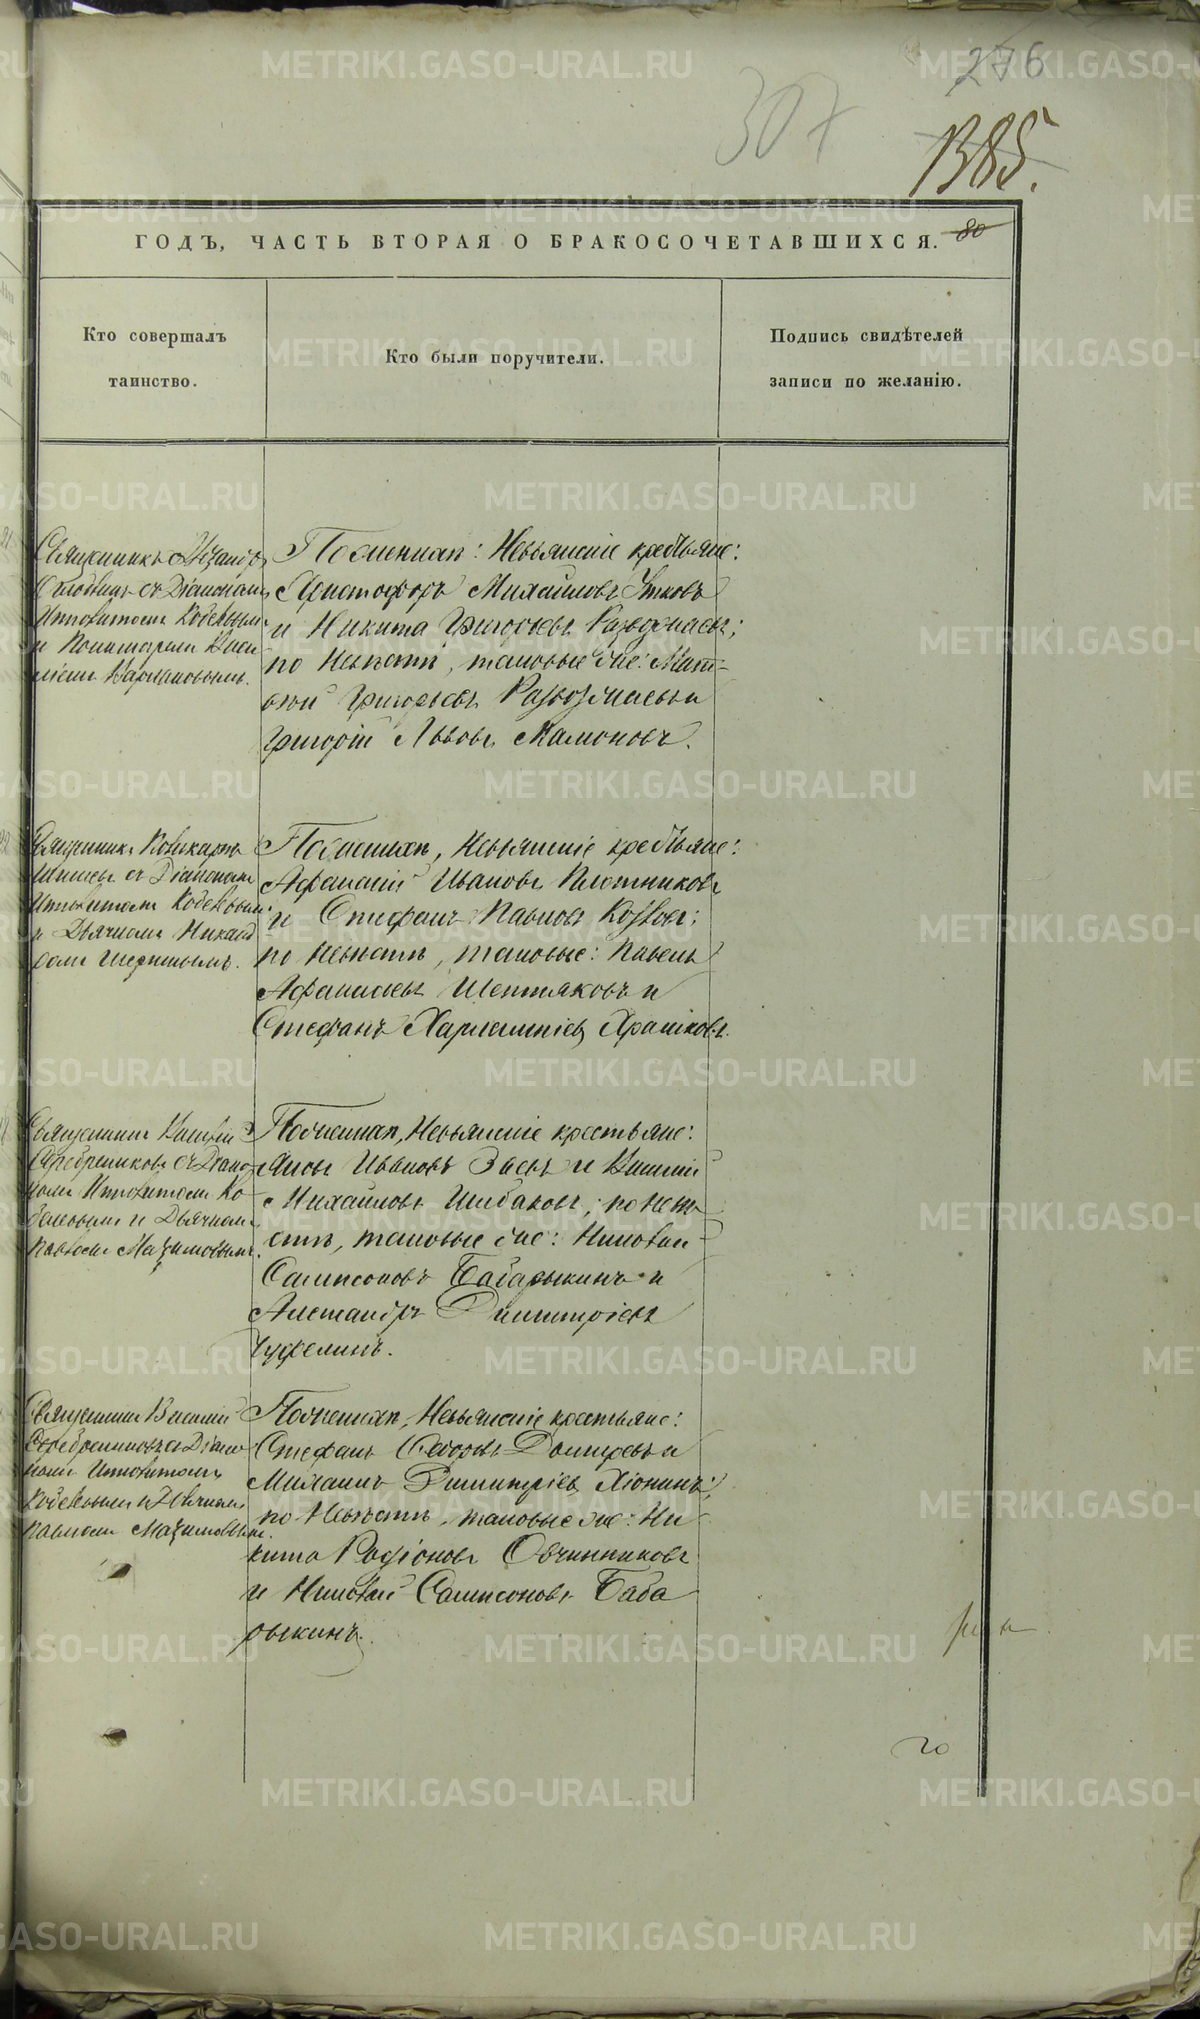 276
307
1385.
ГОДЪ, ЧАСТЬ ВТОРАЯ О БРАКОСОЧЕТАВШИХСЯ. 80
Кто совершалъ
таинство.
Кто были поручители.
Подпись свидѣтелей
записи по желанію.
Священникъ Александръ
съ Діакономъ
Ипполитомъ Кобелевымъ
и Пономаремъ
По женихѣ: Невьянскіе крестьяне:
Христофоръ Михайловъ Утковъ
и Никита Григорьевъ
по Невѣстѣ, таковые же: Мат-
вѣй Григорьевъ
Григорій Львовъ Мамоновъ.
Священникъ Поликарпъ
съ Діакономъ
Ипполитомъ Кобелевымъ
и Дьячкомъ Никанд
ромъ
По женихѣ, Невьянскіе крестьяне:
Афанасій Ивановъ Плотниковъ
и Стефанъ Павловъ Козловъ;
по Невѣстѣ, таковые: Павелъ
Афанасьевъ Шестяковъ и
Стефанъ Харлампіевъ Храмковъ.
Священникъ Василій
Серебрениковъ съ Діако
номъ Ипполитомъ Ко
белевымъ и Дьячкомъ
Павломъ Мазимовымъ.
По женихѣ, Невьянскіе крестьяне:
Ивановъ и Василій
Михайловъ Шибаковъ; по Невѣ
стѣ, таковые же: Николай
Сампсоновъ Бабарыкинъ и
Александръ Димитріевъ
Чуфелинъ.
Священникъ Василій
Серебрениковъ съ Діако
номъ Ипполитомъ
Кобелевымъ и Дьячкомъ
Павломъ Мазимовымъ.
По женихѣ, Невьянскіе крестьяне:
Стефанъ и
Михаилъ Димитріевъ Хіонинъ;
по Невѣстѣ, таковые же: Ни
кита Родіоновъ Овчинниковъ
и Николай Сампсоновъ Баба
рыкинъ.
METRIKI.GASO-URAL.RU